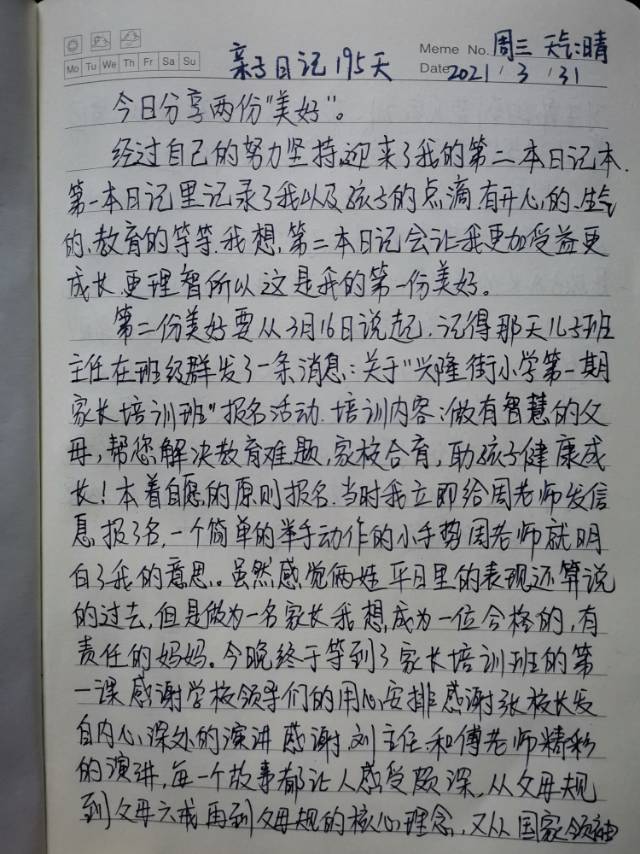 Mo Tu We Th Fr Sa Su
Meme No. 周三 天气:晴
亲子日记195天
Date 2021 / 3 / 31
今日分享两份"美好"。
经过自己的努力坚持,迎来了我的第二本日记本.
第一本日记里记录了我以及孩子的点滴,有开心的、生气
的、教育的等等.我想,第二本日记会让我更加受益更
成长.更理智所以这是我的第一份美好。
第二份美好要从3月16日说起.记得那天儿子班
主任在班级群发了一条消息:关于"兴隆街小学第一期
家长培训班"报名活动.培训内容:做有智慧的父
母,帮您解决教育难题,家校合育,助孩子健康成
长!本着自愿的原则报名.当时我立即给周老师发信
息,报了名,一个简单的举手动作的小手势周老师就明
白了我的意思。虽然感觉俩娃平日里的表现还算说
的过去,但是做为一名家长我想,成为一位合格的,有
责任的妈妈。今晚终于等到了家长培训班的第
一课感谢学校领导们的用心安排感谢张校长发
自内心深处的演讲感谢刘主任和傅老师精彩
的演讲,每一个故事都让人感受颇深,从父母规
到父母六戒再到父母规的核心理念,又从国家领袖